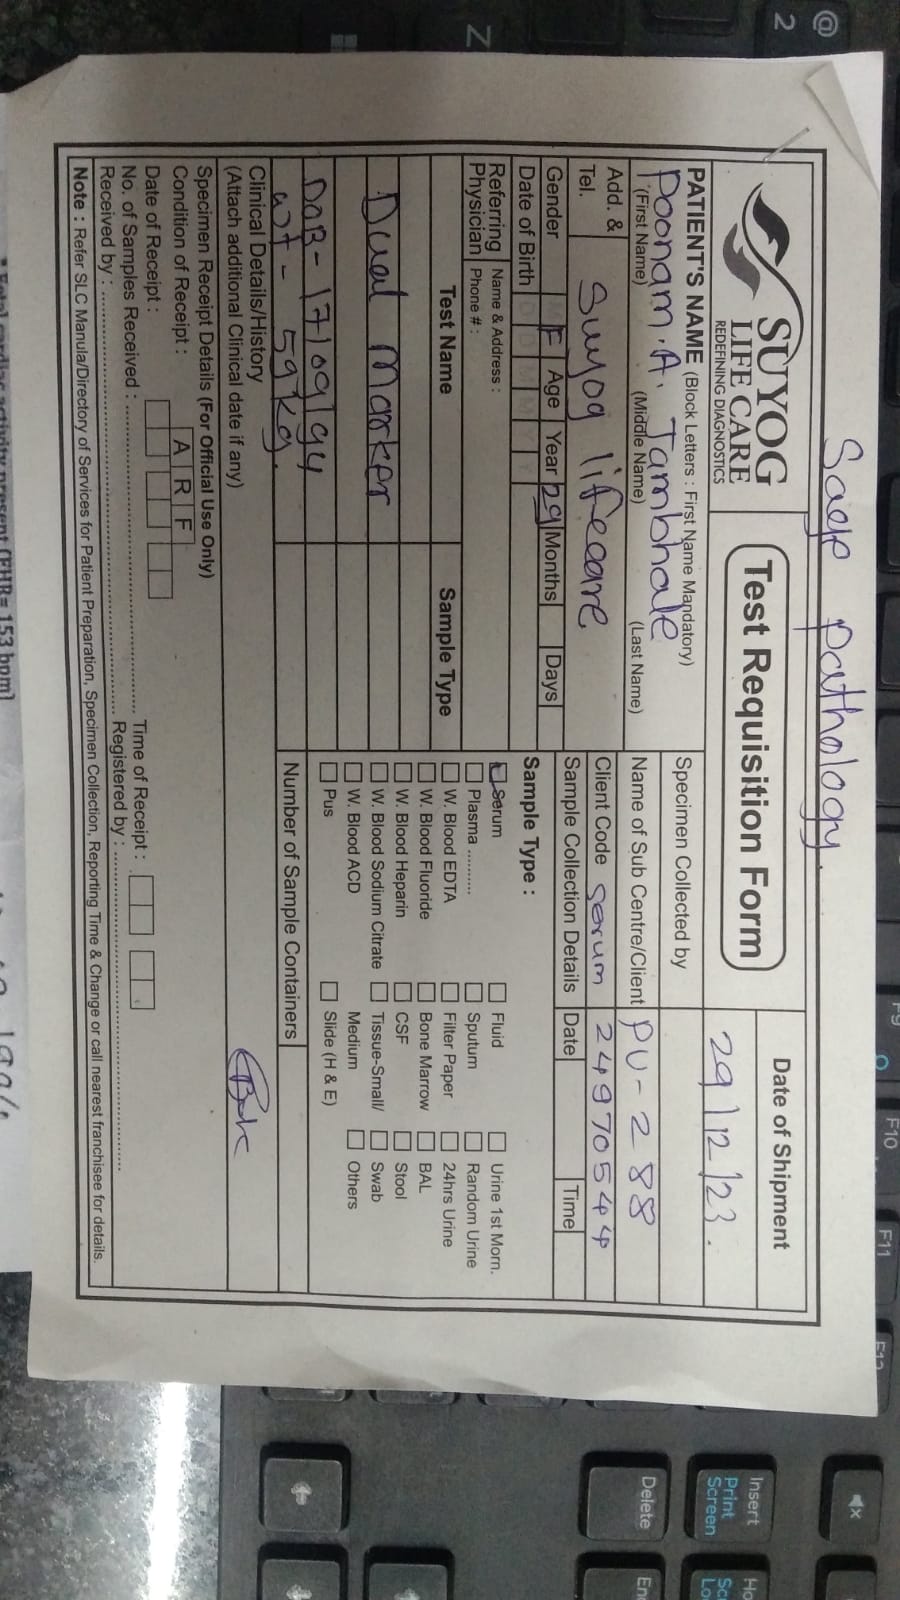 Saep Pathology.
SUYOG
LIFE CARE
REDEFINING DIAGNOSTICS
Test Requisition Form
Date of Shipment
29/12/23.
PATIENT'S NAME (Block Letters : First Name Mandatory)
Poonam . A. Tambhale
(First Name) (Middle Name) (Last Name)
Add. &
Tel.
Suyog lifecare
Gender M F Age Year 29 Months Days
Date of Birth D D M M Y Y
Referring Physician
Name & Address :
Phone # :
Specimen Collected by
Name of Sub Centre/Client PU-288
Client Code Serum 24970544
Sample Collection Details Date Time
Test Name Sample Type
Dual Marker
DOB - 17/09/94
wt - 59kg.
Sample Type :
Serum Fluid Urine 1st Morn.
Plasma .......... Sputum Random Urine
W. Blood EDTA Filter Paper 24hrs Urine
W. Blood Fluoride Bone Marrow BAL
W. Blood Heparin CSF Stool
W. Blood Sodium Citrate Tissue-Small/ Swab
W. Blood ACD Medium Others
Pus Slide (H & E)
Number of Sample Containers
Clinical Details/History
(Attach additional Clinical date if any)
Specimen Receipt Details (For Official Use Only)
Condition of Receipt : A R F
Date of Receipt : Time of Receipt :
No. of Samples Received : Registered by :
Received by :
Note : Refer SLC Manula/Directory of Services for Patient Preparation, Specimen Collection, Reporting Time & Change or call nearest franchisee for details.
(FHR= 153 bpm)
@
2
Z
F9
F10
F11
F12
Insert
Print
Screen
Delete